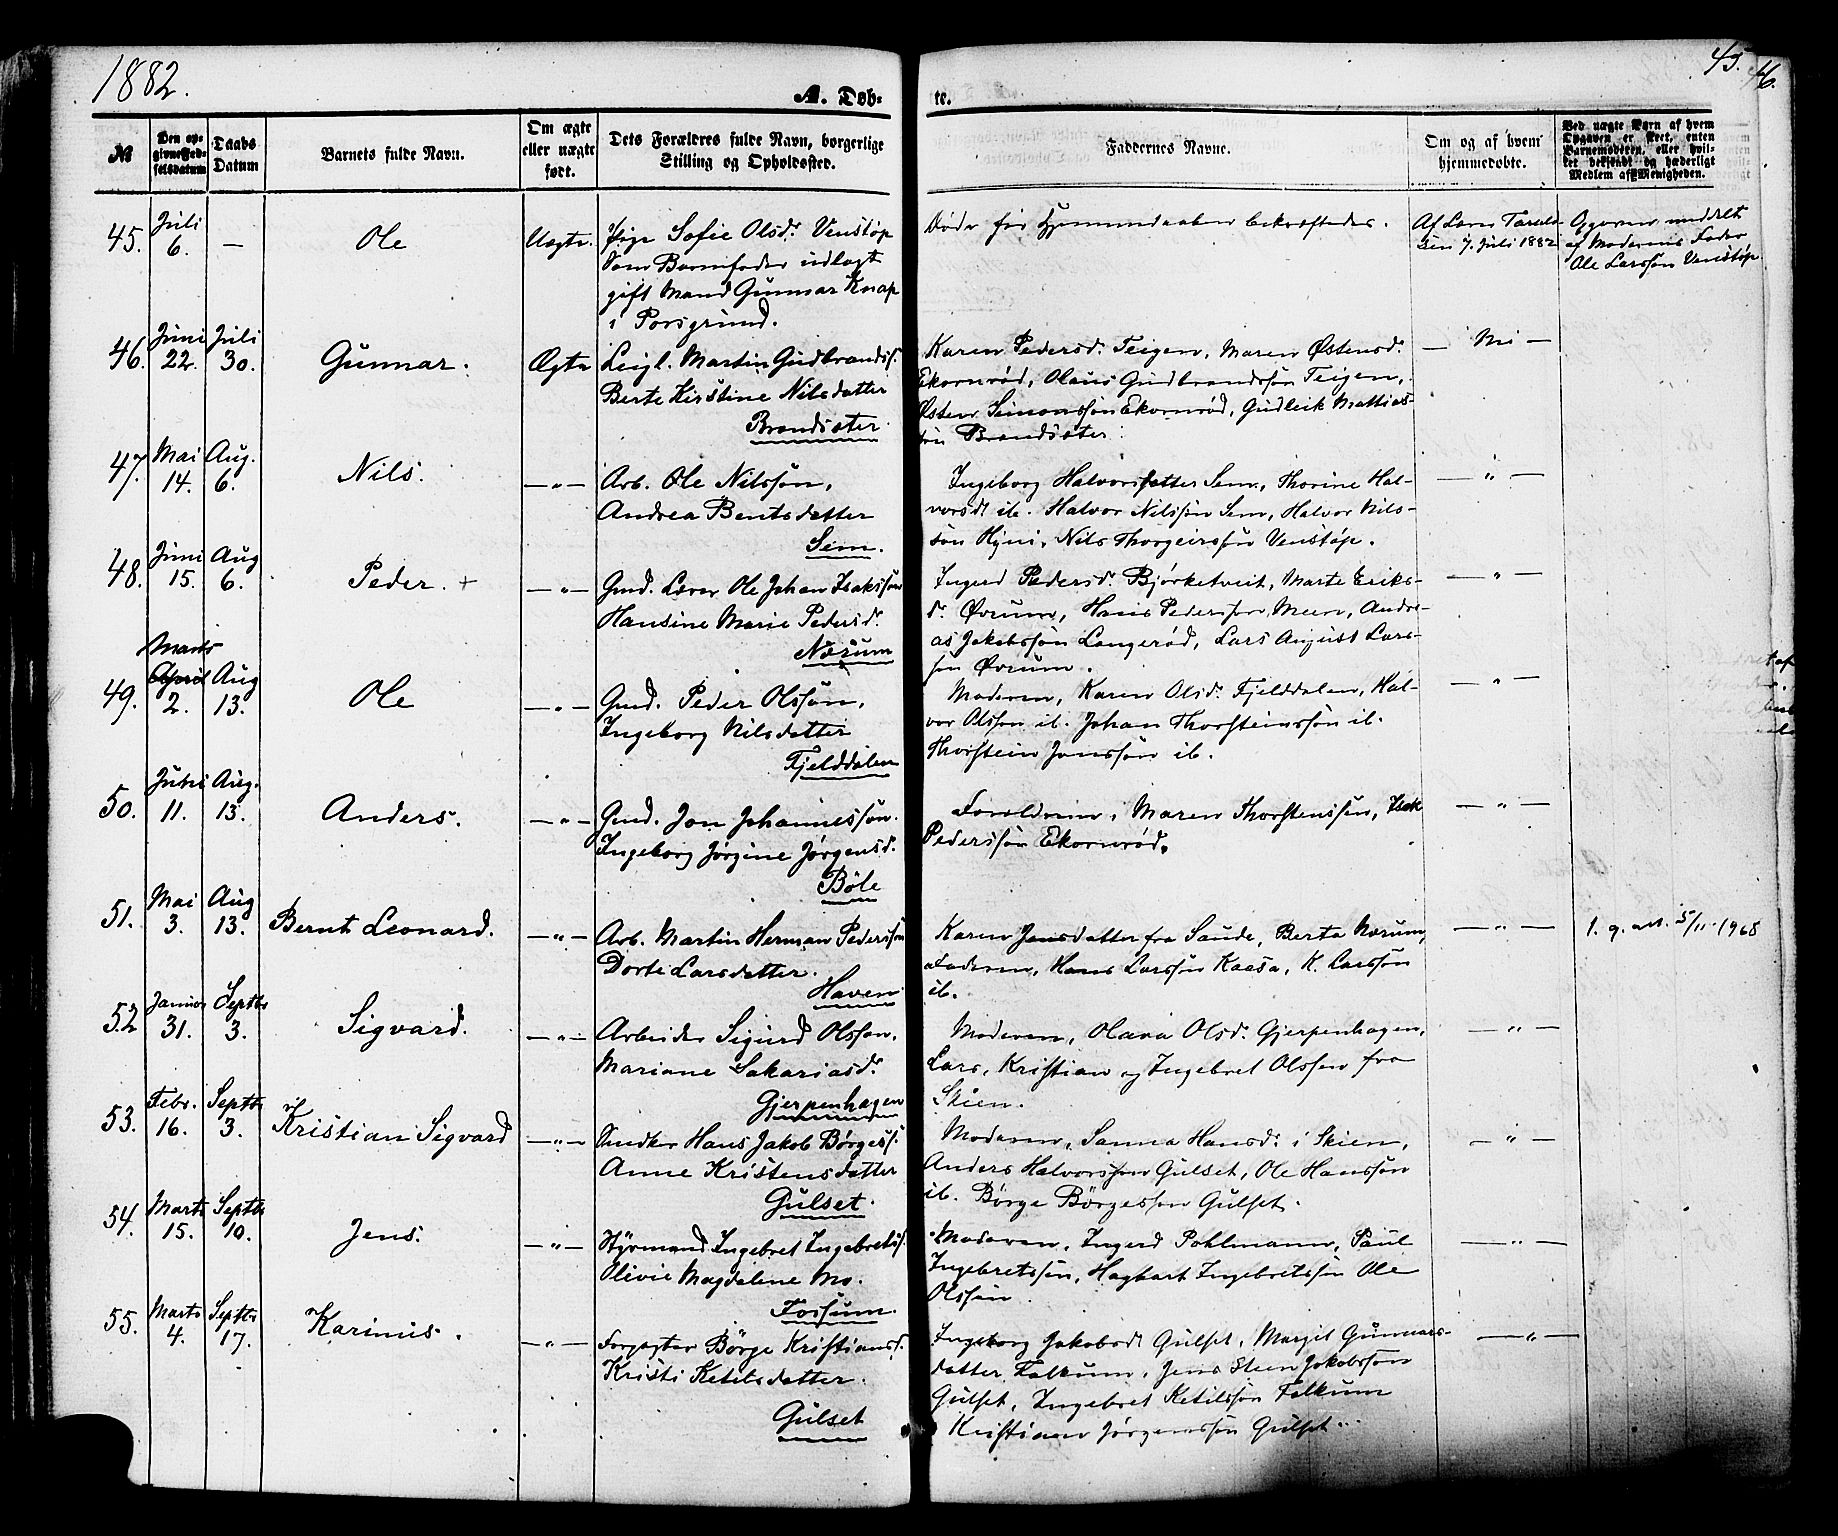 1882.
A. Døb-
te.
45.
46.
№
Den opgivne Fødselsdatum
Daabs Datum
Barnets fulde Navn.
Om ægte eller uægte født.
Dets Forældres fulde Navn, borgerlige Stilling og Opholdssted.
Faddernes Navne.
Om og af hvem hjemmedøbte.
Ved uægte Børn af hvem Opgaven er skeet, enten Barnemoderen, eller hvilket bekjendt og hæderligt Medlem af Menigheden.
45. Juli 6. — Ole Uægte. Pige Sofie Olsd. Venstøp
Som Barnefader udlagt
gift Mand Gunnar Knap
i Porsgrund.
Døde før Hjemmedaaben bekræftedes.
Af Lars
den 7. Juli 1882
Opgaven meddelt
af Moderens Fader
Ole Larssøn Venstøp
46. Juni 22. Juli 30. Gunnar. Ægte Leigl. Martin Gudbrandss.
Berte Kirstine Nilsdatter
Brandsæter.
Karen Pedersd. Teigen, Maren Østensd.
Ekornrød, Olaus Gudbrandssøn Teigen,
Østen Simonssøn Ekornrød, Gudleik Mattias-
søn Brandsæter.
— Nei —
47. Mai 14. Aug. 6. Nils. — " — Arb. Ole Nilssøn,
Andrea Bentsdatter
Sem.
Ingeborg Halvorsdatter Sem, Thorine Hal-
vorsdt. ib. Halvor Nilssøn Sem, Halvor Nils-
søn Hyni, Nils Thorgeirssøn Venstøp.
— " —
48. Juni 15. Aug 6. Peder. + — " — Gmd. Lærer Ole Johan Isakssøn
Hansine Marie Pedersd.
Nærum
Ingerd Pedersd. Bjørketveit, Marte Eriks-
d. Øvrum, Hans Pederssøn Meen, Andre-
as Jakobssøn Langerød, Lars August Lars-
søn Øvrum.
— " —
49. Marts April 2. Aug 13. Ole — " — Gmd. Peder Olssøn,
Ingeborg Nilsdatter
Fjelddalen
Moderen, Karen Olsd. Fjelddalen, Hal-
vor Olssøn ib. Johan Thorsteinssøn ib.
Thorstein Jonssøn ib.
— " —
50. Juni 11. Aug. 13. Anders. — " — Gmd. Jon Johannessøn.
Ingeborg Jørgine Jørgensd.
Bøle
Forældrene, Maren Thorstenssøn, Isak
Pederssøn Ekornrød.
— " —
51. Mai 3. Aug 13. Bernt Leonard. — " — Arb. Martin Herman Pederssøn
Dorte Larsdatter.
Haven
Karen Jensdatter fra Saude, Berta Nærum,
Faderen, Hans Larssøn Kaasa, K. Larssøn
ib.
— " —
1. g. att. 5/11-1968
52 Januar 31. Septbr 3. Sigvard. — " — Arbeider Sigurd Olssøn,
Mariane Sakariasd.
Gjerpenhagen
Moderen, Olava Olsd. Gjerpenhagen,
Lars, Kristian og Ingebret Olssøn fra
Skien.
— " —
53. Febr. 16. Septbr 3. Kristian Sigvard — " — Snedker Hans Jakob Børgess.
Anne Kristensdatter
Gulset.
Moderen, Sanna Hansd. i Skien,
Anders Halvorssøn Gulset, Ole Hanssøn
ib. Børge Børgessøn Gulset.
— " —
54. Marts 15. Septbr 10. Jens. — " — Styrmand Ingebret Ingebretss.
Olivie Magdalene Mo.
Fossum.
Moderen, Ingerd Pohlmann, Paul
Ingebretssøn, Hagbart Ingebretssøn Ole
Olssøn
— " —
55. Marts 4. Septbr 17. Karinius. — " — Forpagter Børge Kristianss.
Kristi Ketilsdatter.
Gulset
Ingeborg Jakobsdt Gulset, Margit Gunnars-
datter Falkum, Jens Steen Jakobssøn
Gulset, Ingebret Ketilssøn Falkum
Kristian Jørgenssøn Gulset.
— " —